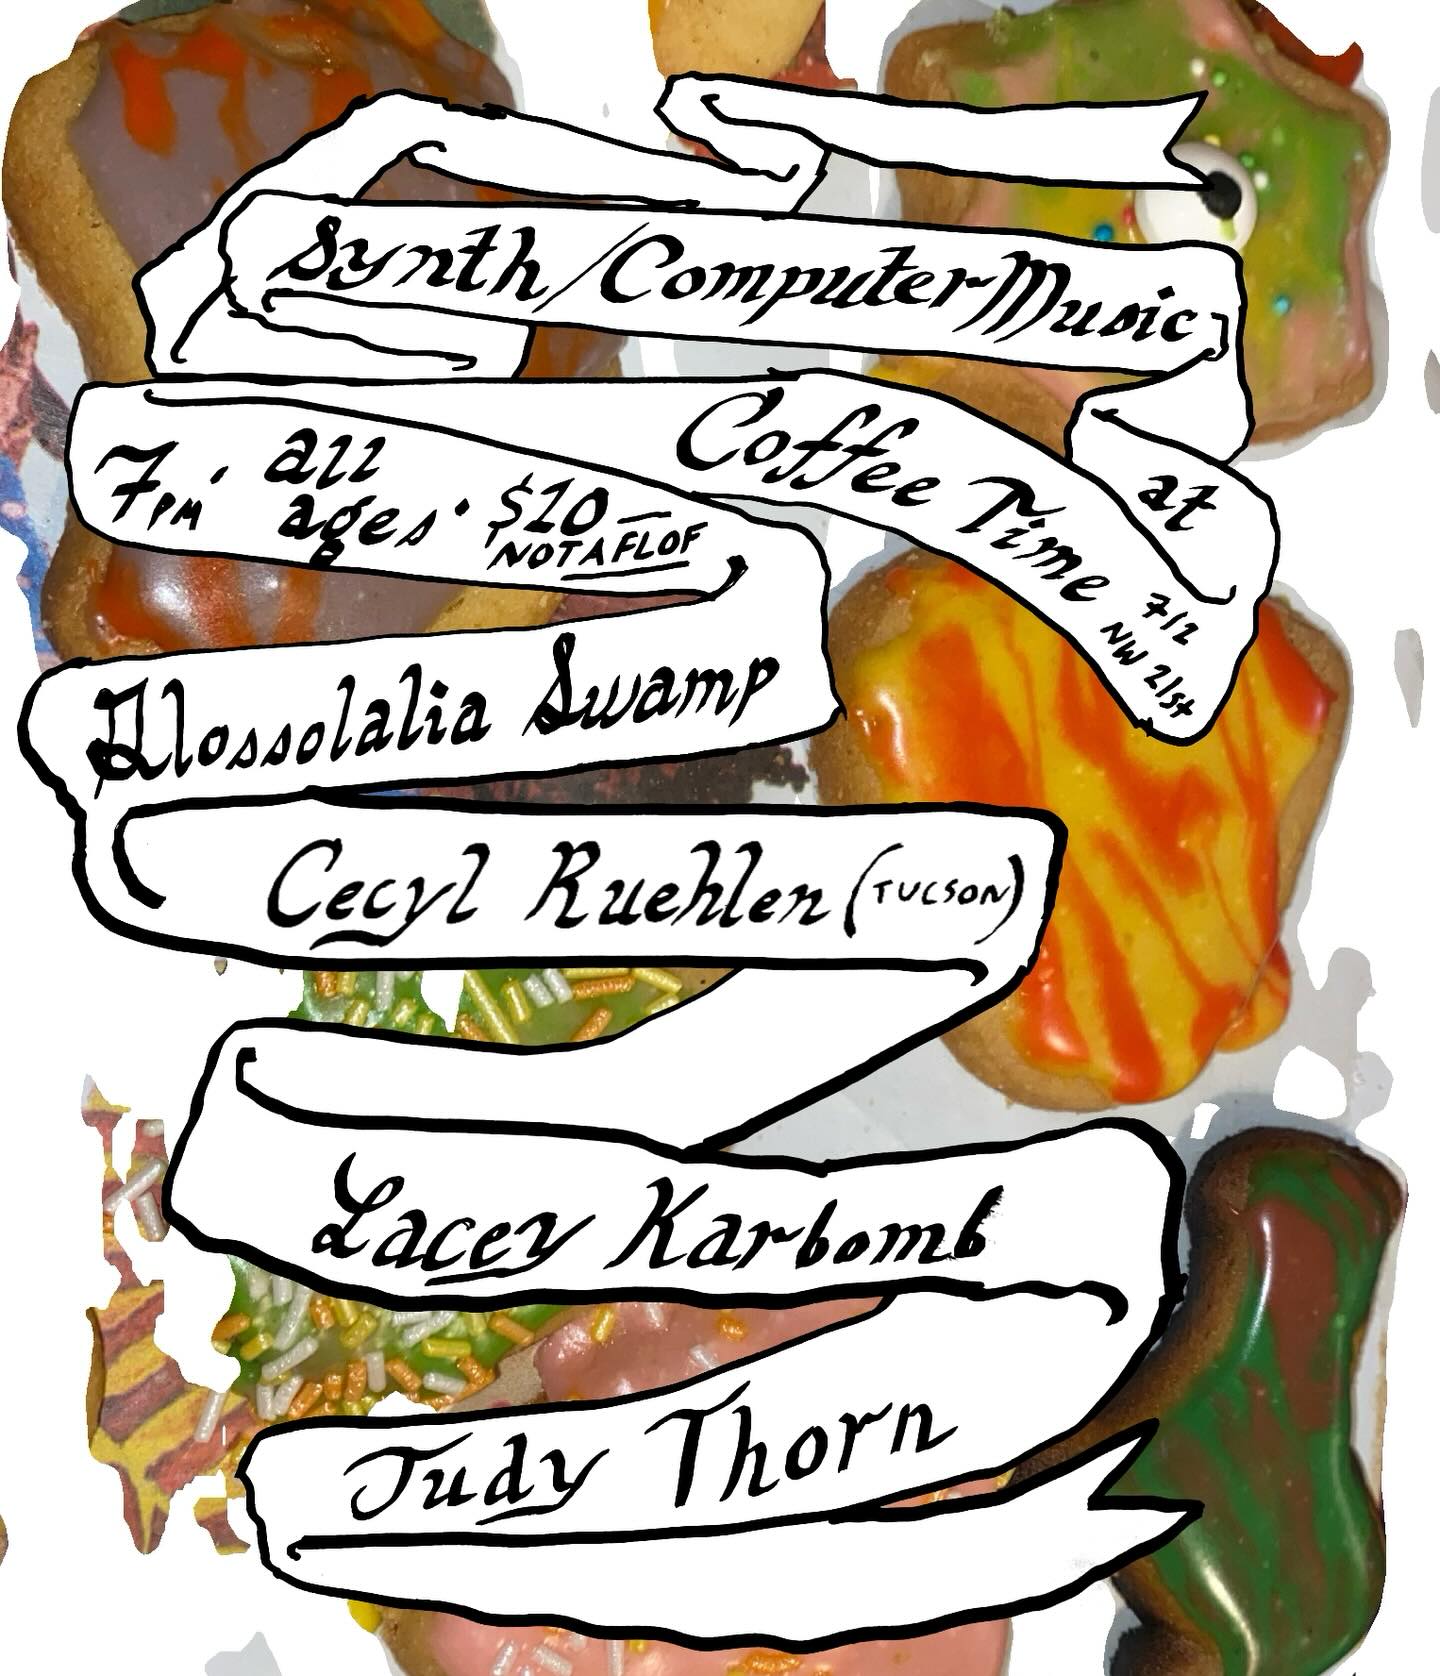 Synth/Computer Music
at
Coffee Time
712
NW 21st
7PM · all ages · $10—
NOTAFLOF
Glossolalia Swamp
Cecyl Ruehlen (TUCSON)
Lacey Karbomb
Judy Thorn